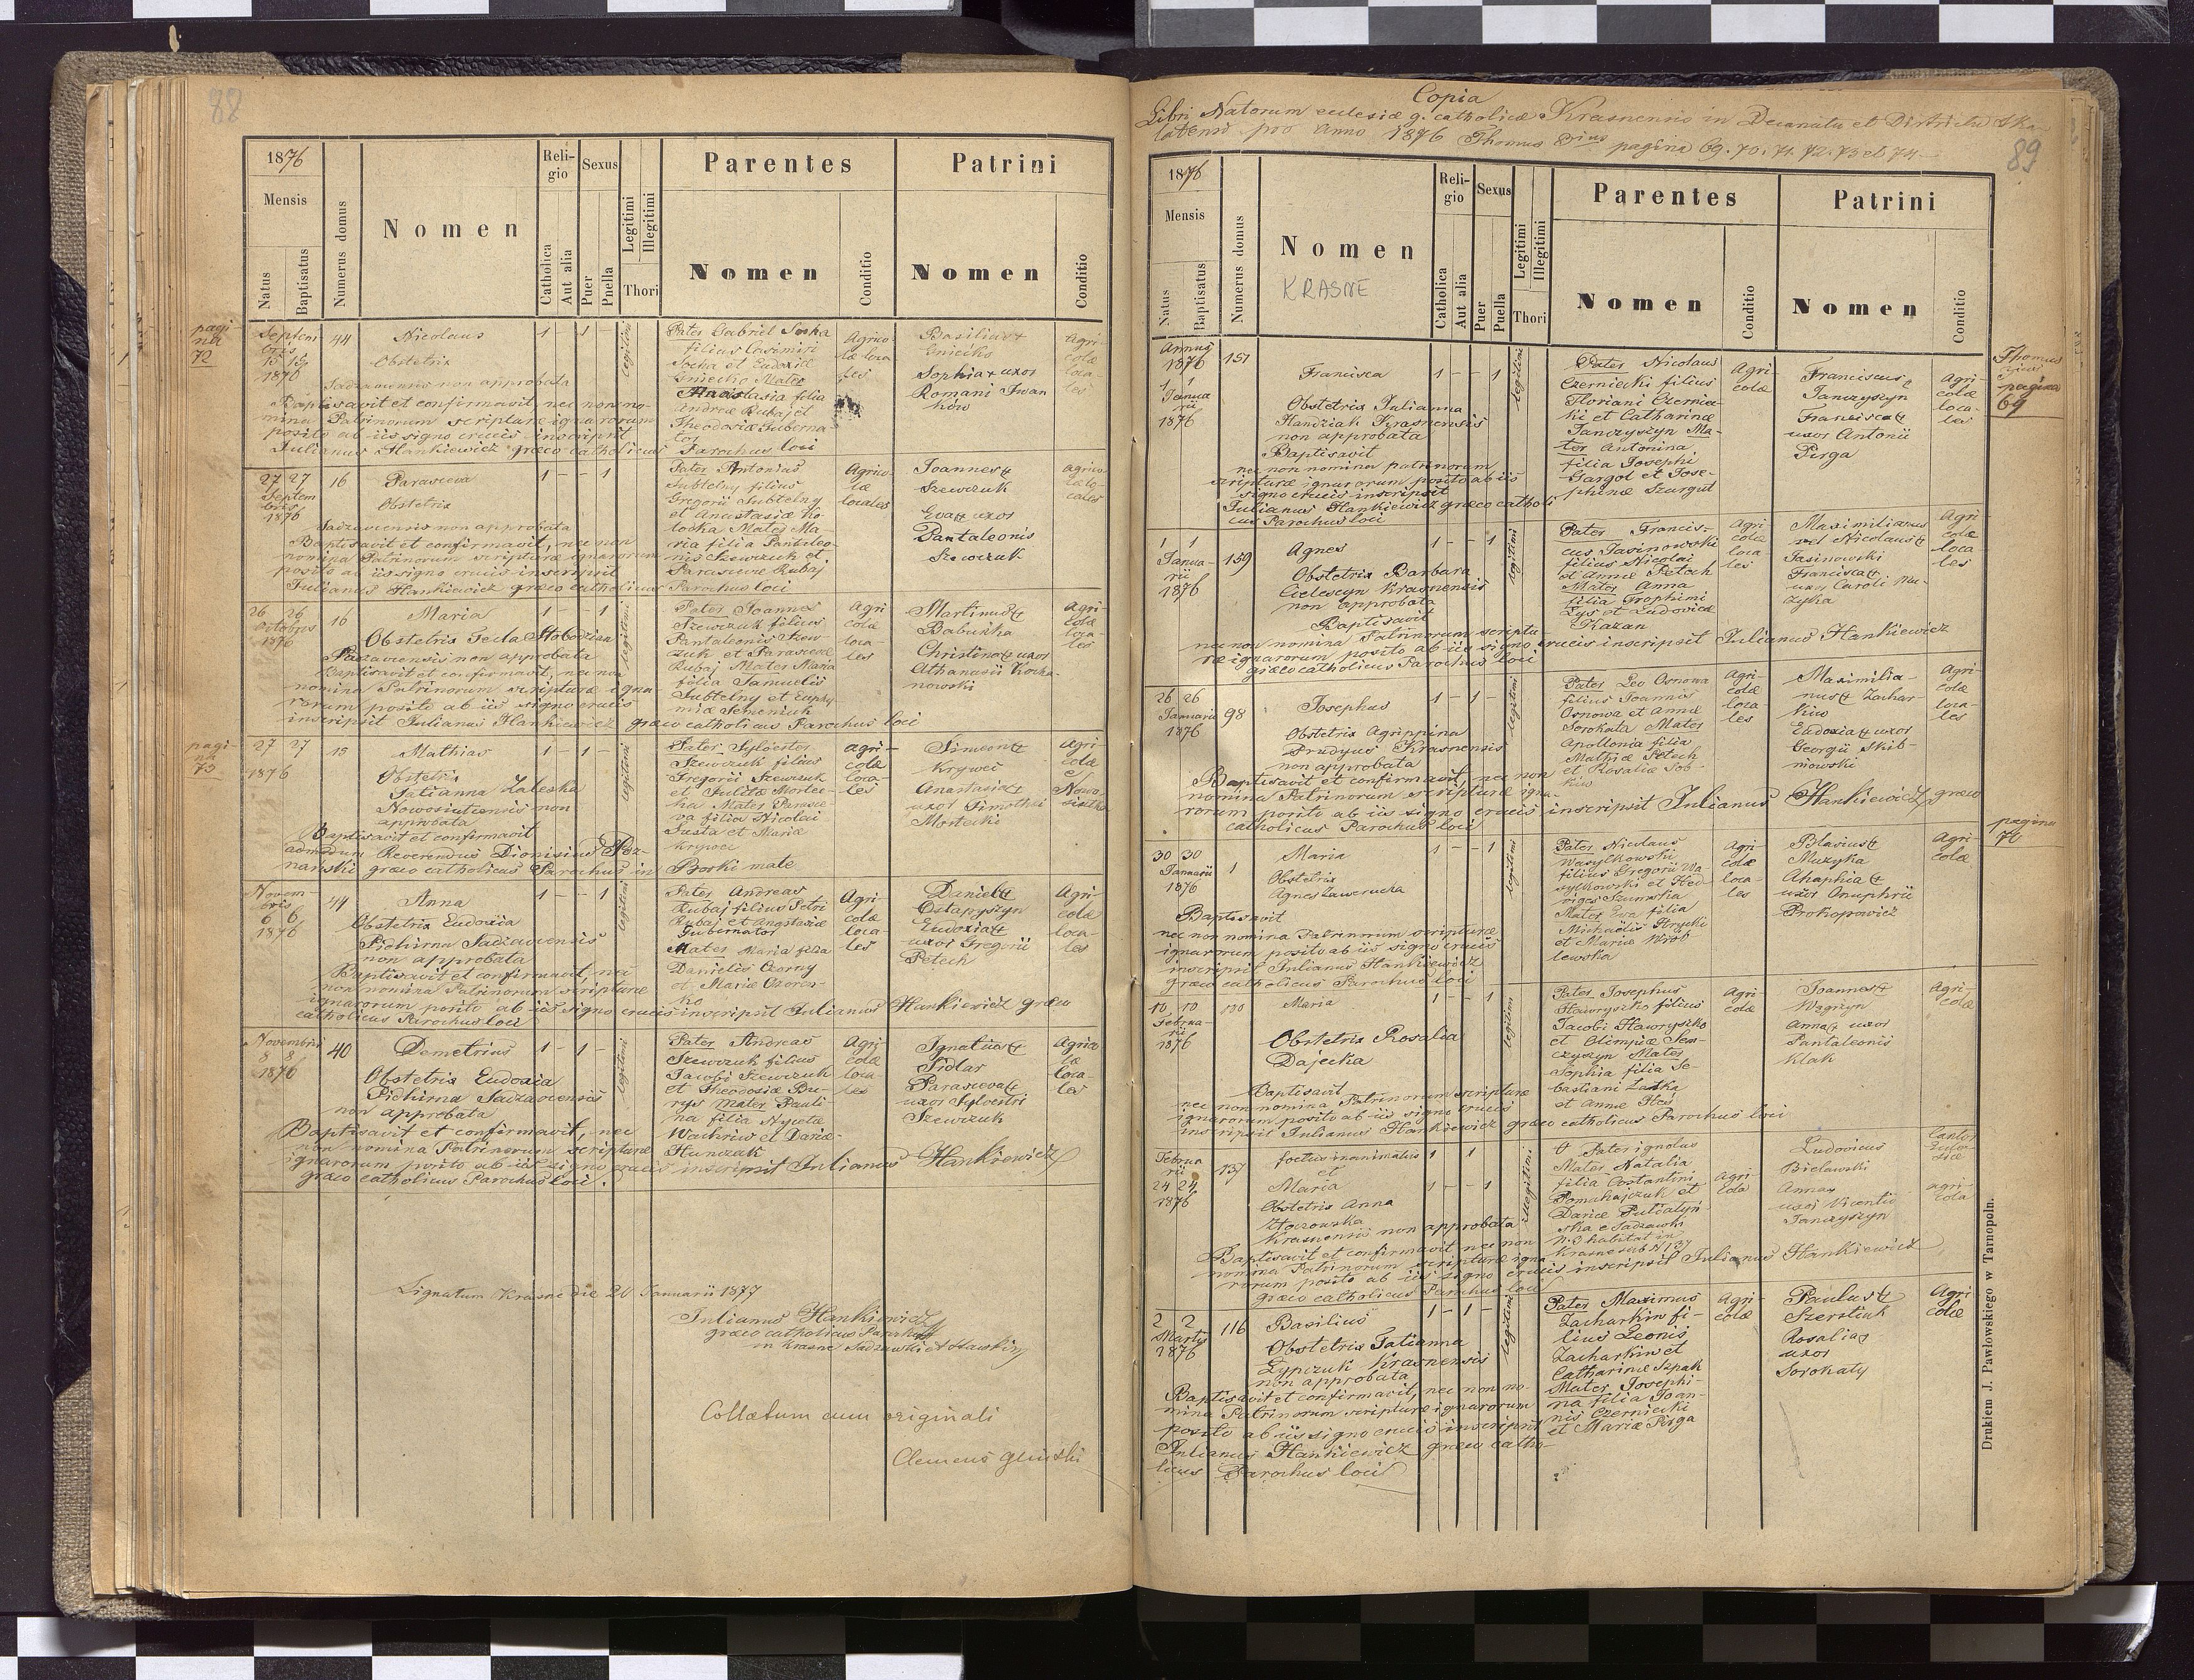 88
1876
Mensis
Natus
Baptisatus
Numerus domus
Nomen
Religio
Catholica
Aut alia
Sexus
Puer
Puella
Legitimi
Illegitimi
Thori
Parentes
Nomen
Conditio
Patrini
Nomen
Conditio
pagi-
na
72
Septem
bris
1876
44
Nicolaus
1 - 1 -
legitimi
Obstetrix
Sadzaviensis non approbata
Baptisavit et confirmavit, nec non no-
mina Patrinorum scripturæ ignarorum
posito ab iis signo crucis inscripsit
Julianus Hankiewicz græco catholicus Parochus loci
Pater Gabriel Socha
filius Casimiri
Socha et Eudoxiæ
Gniecko Mater
Anastasia filia
Andreæ Rubaj et
Theodosiæ Guberna-
tor
Agrico
læ loca
les
Basilius +
Gniecko
Sophia + uxor
Romani Iwan
ków
Agri-
colæ
loca-
les
27 27
Septem
bris
1876
16
Parasceva
1 - - 1
Obstetrix
Sadzaviensis non approbata
Baptisavit et confirmavit, nec non
nomina Patrinorum scripturæ ignarorum
posito ab iis signo crucis inscripsit
Julianus Hankiewicz græco catholicus Parochus loci
Pater Antonius
Subtelny filius
Gregorii Subtelny
et Anastasiæ Ko-
locka Mater Ma-
ria filia Pantaleo-
nis Szewczuk et
Parascevæ Rubaj
Agrico
læ
locales
Joannes +
Szewczuk
Eva + uxor
Pantaleonis
Szewczuk
agrico
læ lo-
cales
26 26
Octobris
1876
16
Maria
1 - - 1
legitimi
Obstetrix Tecla Stobodzian
Sadzaviensis non approbata
Baptisavit et confirmavit, nec non
nomina Patrinorum scripturæ igna
rorum posito ab iis signo crucis
inscripsit Julianus Hankiewicz græco catholicus Parochus loci
Pater Joannes
Szewczuk filius
Pantaleonis Szew-
czuk et Parascevæ
Rubaj Mater Maria
filia Samuelis
Subtelny et Euphe-
miæ Semeniuk
Agri
colæ
loca-
les
Martinus +
Babuska
Christina + uxor
Athanasii Kocha-
nowski
Agri
colæ
loca-
les
pagi-
na
73
27 27
1876
15
Mathias
1 - 1 -
legitimi
Obstetrix
Tatianna Zaleska
Nowosiutiensis non
approbata
Baptisavit et confirmavit
admodum Reverendus Dionisius Poz-
nański græco catholicus Parochus in Borki małe
Pater Sylvester
Szewczuk filius
Gregorii Szewczuk
et Julittæ Mortec-
ka Mater Parasce
va filia Nicolai
Susta et Mariæ
Krywei
agri-
colæ
loca-
les
Simeon +
Krywei
Anastasia +
uxor Timothei
Mostecki
Agri
colæ
Novem-
bris
6 6
1876
44
Anna
1 - - 1
legitimi
Obstetrix Eudoxia
Pidhirna Sadzaviensis
non approbata
Baptisavit et confirmavit, nec
non nomina Patrinorum scripturæ
ignarorum posito ab iis signo crucis inscripsit Julianus Hankiewicz græco
catholicus Parochus loci
Pater Andreas
Rubaj filius Petri
Rubaj et Anastasiæ
Gubernator
Mater Maria filia
Danielis Czorny
et Mariæ Czoren-
ko
Agri-
colæ
loca-
les
Daniel +
Ostapyszyn
Eudoxia +
uxor Gregorii
Petech
Agri-
colæ
loca-
les
Novembris
8 8
1876
40
Demetrius
1 - 1 -
legitimi
Obstetrix Eudoxia
Pidhirna Sadzaviensis
non approbata
Baptisavit et confirmavit, nec
non nomina Patrinorum scripturæ
ignarorum posito ab iis signo crucis inscripsit Julianus Hankiewicz
græco catholicus Parochus loci.
Pater Andreas
Szewczuk filius
Jacobi Szewczuk
et Theodosiæ Bu-
rys Mater Pauli-
na filia Nycolæ
Wachniw et Dariæ
Hunczak
Agri-
colæ
loca-
les
Ignatius +
Sidlar
Parasceva +
uxor Sylvestri
Szewczuk
Agrico
læ
loca-
les
Signatum Krasne die 20 Januarii 1877
Julianus Hankiewicz
græco catholicus Parochus
in Krasne Sadzawki
Collatum cum originali
Clemens Gliński
Copia
Libri Natorum ecclesiæ g. catholicæ Krasnensis in Decanatu et Districtu Ska-
latensi pro anno 1876 Thomus pagina 69. 70. 71. 72. 73 et 74
89
1876
Mensis
Natus
Baptisatus
Numerus domus
Nomen
KRASNE
Religio
Catholica
Aut alia
Sexus
Puer
Puella
Legitimi
Illegitimi
Thori
Parentes
Nomen
Conditio
Patrini
Nomen
Conditio
Thomus
pagina
69
Annus
1876
1 1
Janua
rii
1876
151
Francisca
1 - - 1
legitimi
Obstetrix Julianna
Handziak Krasnensis
non approbata
Baptisavit
nec non nomina patrinorum
scripturæ ignarorum posito ab iis
signo crucis inscripsit
Julianus Hankiewicz græco catholi
cus Parochus loci
Pater Nicolaus
Czerniecki filius
Floriani Czernie-
ki et Catharinæ
Janczyszyn Ma-
ter Antonina
filia Josephi
Gargol et Jose-
phinæ Szargut
Agri-
colæ
Franciscus +
Janczyszyn
Francisca +
uxor Antonii
Pirga
Agri-
colæ
loca-
les
1 1
Janua-
rii
1876
159
Agnes
1 - - 1
legitimi
Obstetrix Barbara
Cieleszyn Krasnensis
non approbata
Baptisavit
nec non nomina Patrinorum scriptu
ræ ignarorum posito ab iis signo crucis inscripsit Julianus Hankiewicz
græco catholicus Parochus loci
Pater Francis-
cus Jasinowski
filius Nicolai
et Annæ Petech
Mater Anna
filia Trophimi
Zys et Ludovicæ
Kazan
Agri
colæ
loca-
les
Maximilianus
vel Nicolaus +
Jasinowski
Francisca +
uxor Caroli Mu-
zyka
Agri-
colæ
loca-
les
26 26
Januarii
1876
98
Josephus
1 - 1 -
legitimi
Obstetrix Agrippina
Prudyus Krasnensis
non approbata
Baptisavit et confirmavit, nec non
nomina Patrinorum scripturæ igna-
rorum posito ab iis signo crucis inscripsit Julianus Hankiewicz græco
catholicus Parochus loci
Pater Leo Osnowa
filius Joannis
Osnowa et Annæ
Sorokata Mater
Apollonia filia
Mathiæ Petech
et Rosaliæ Sob-
kiw
Agri-
colæ
loca-
les
Maximilia-
nus + Zachar-
kiw
Eudoxia + uxor
Georgii Skib-
niowski
Agri-
colæ
loca-
les
pagina
70
30 30
Januarii
1876
1
Maria
1 - - 1
legitimi
Obstetrix
Agnes Zawerucha
Baptisavit
nec non nomina Patrinorum scripturæ
ignarorum posito ab iis signo crucis
inscripsit Julianus Hankiewicz
græco catholicus Parochus loci
Pater Nicolaus
Wasylkowski
filius Gregorii Wa
sylkowski et Hed
viges Szumska
Mater Eva filia
Michaelis Hrycki
et Mariæ Wrób
lewska
Agri-
colæ
loca-
les
Blasius +
Muzyka
Ahaphia +
uxor Onuphrii
Prokopowicz
Agri
colæ
10 10
Februa-
rii
1876
130
Maria
1 - - 1
legitimi
Obstetrix Rosalia
Dajecka
Baptisavit
nec non nomina Patrinorum scripturæ
ignarorum posito ab iis signo crucis
inscripsit Julianus Hankiewicz græco catholicus Parochus loci
Pater Josephus
Hawryszko filius
Jacobi Hawryszko
et Olimpiæ Sen-
czyszyn Mater
Sophia filia Se-
bastiani Zatka
et Annæ Heś
Agri-
colæ
Joannes +
Węgrzyn
Anna + uxor
Pantaleonis
Klak
Agri-
colæ
Februa
rii
24 24
1876
137
foetus inanimatus 1 1
et
Maria
1 - - 1
illegitimi
Obstetrix Anna
Kłoczowska
Krasnensis non approbata
Baptisavit et confirmavit nec non
nomina Patrinorum scripturæ igna
rorum posito ab iis signo crucis inscripsit Julianus Hankiewicz
græco catholicus Parochus loci
Pater ignotus
Mater Natalia
filia Constantini
Pomahajczuk et
Dariæ
ska e Sadzawki
N. 3 habitat in
Krasne sub N 137
Agri-
cola
Ludovicus
Bielawski
Anna +
uxor Vicentii
Janczyszyn
Cantor
agri-
cola
2 2
Martii
1876
116
Basilius
1 - 1 -
legitimi
Obstetrix Tatianna
Zypczuk Krasnensis
non approbata
Baptisavit et confirmavit, nec non no-
mina Patrinorum scripturæ ignarorum
posito ab iis signo crucis inscripsit
Julianus Hankiewicz græco catho-
licus Parochus loci
Pater Maximus
Zacharkiw fi-
lius Leonis
Zacharkiw et
Catharinæ Szpak
Mater Josephi-
na filia Joan-
nis Czerniecki
et Mariæ Pirga
Agri-
colæ
Paulus +
Szerstiuk
Rosalia +
uxor
Sorokaty
Agri
colæ
Drukiem J. Pawłowskiego w Tarnopolu.